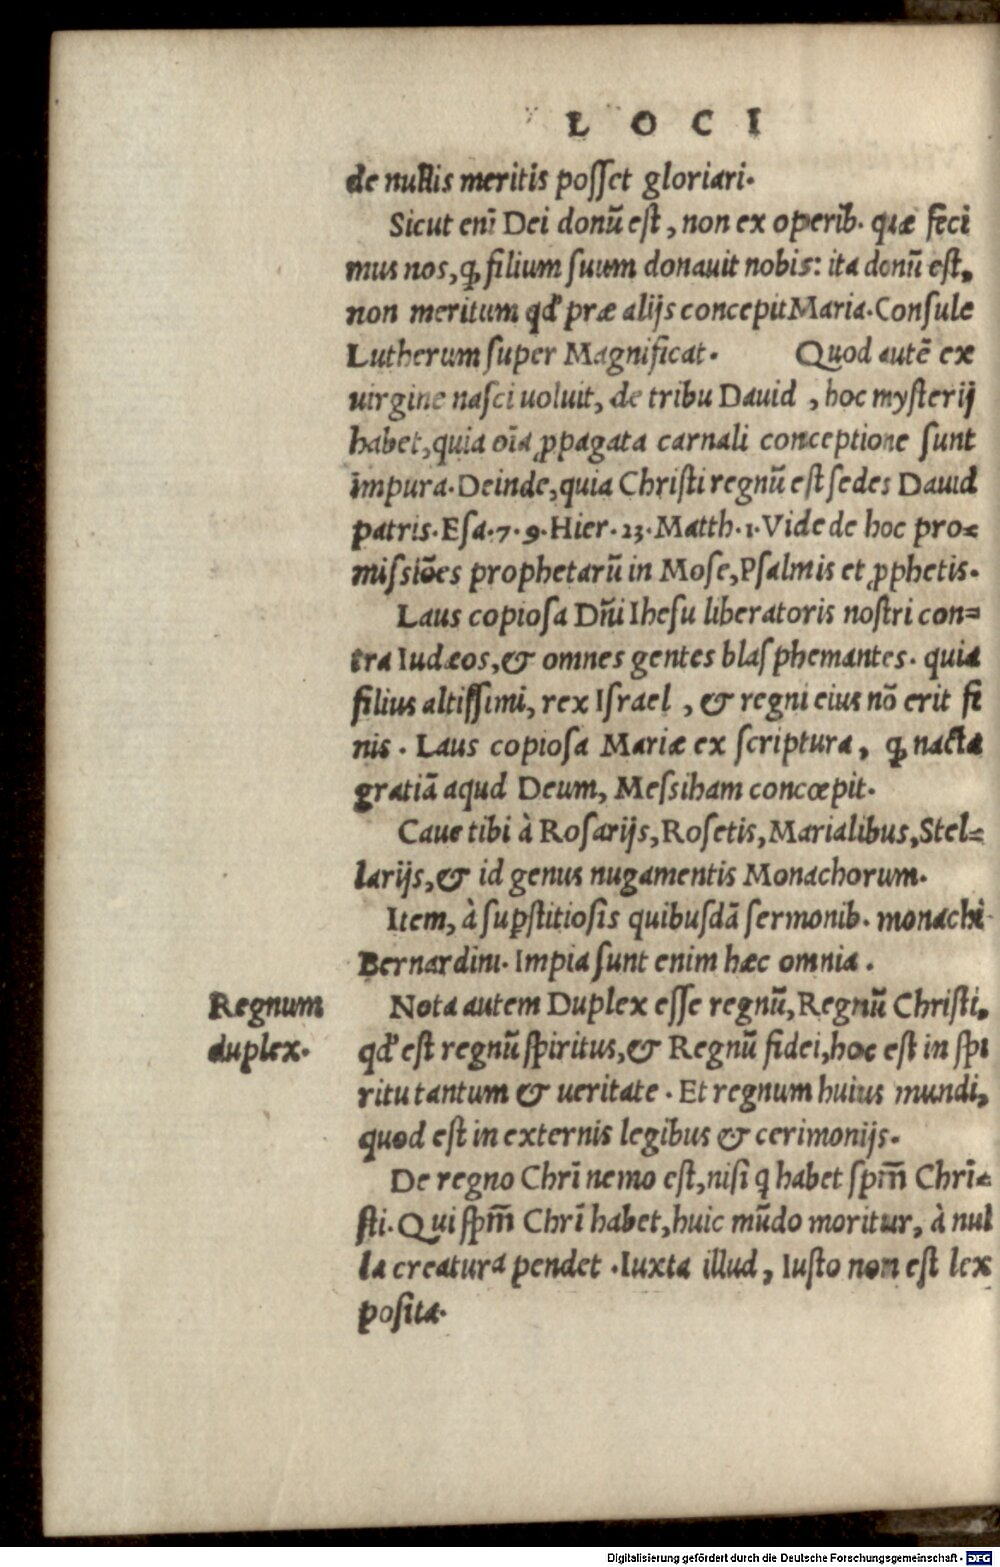 L O C I
de nullis meritis posſet gloriari.
Sicut enī Dei donū eſt, non ex operib. quæ feci
mus nos, ꝙ filium ſuum donauit nobis: ita donū eſt,
non meritum qď præ alijs concepit Maria. Conſule
Lutherum ſuper Magnificat. Quod autē ex
uirgine naſci uoluit, de tribu Dauid, hoc myſterij
habet, quia oīa ꝓpagata carnali conceptione ſunt
impura. Deinde, quia Chriſti regnū eſt ſedes Dauid
patris. Eſa. 7. 9. Hier. 23. Matth. 1. Vide de hoc pro-
miſsiōes prophetarū in Moſe, Pſalmis et ꝓphetis.
Laus copioſa Dñi Iheſu liberatoris noſtri con=
tra Iudæos, & omnes gentes blaſphemantes. quia
filius altiſſimi, rex Iſrael, & regni eius nō erit fi
nis. Laus copioſa Mariæ ex ſcriptura, ꝙ nacta
gratiā aqud Deum, Meſsiham concœpit.
Caue tibi à Roſarijs, Roſetis, Marialibus, Stel=
larijs, & id genus nugamentis Monachorum.
Item, à ſuꝑſtitioſis quibuſdā ſermonib. monachi
Bernardini. Impia ſunt enim hæc omnia.
Regnum
duplex.
Nota autem Duplex eſſe regnū, Regnū Chriſti,
qď eſt regnū ſpiritus, & Regnū fidei, hoc eſt in ſpi
ritu tantum & ueritate. Et regnum huius mundi,
quod eſt in externis legibus & cerimonijs.
De regno Chrī nemo eſt, niſi q habet ſpm̄ Chrī-
ſti. Qui ſpm̄ Chrī habet, huic mūdo moritur, à nul
la creatura pendet. Iuxta illud, Iuſto non eſt lex
poſita.
Digitalisierung gefördert durch die Deutsche Forschungsgemeinschaft - DFG